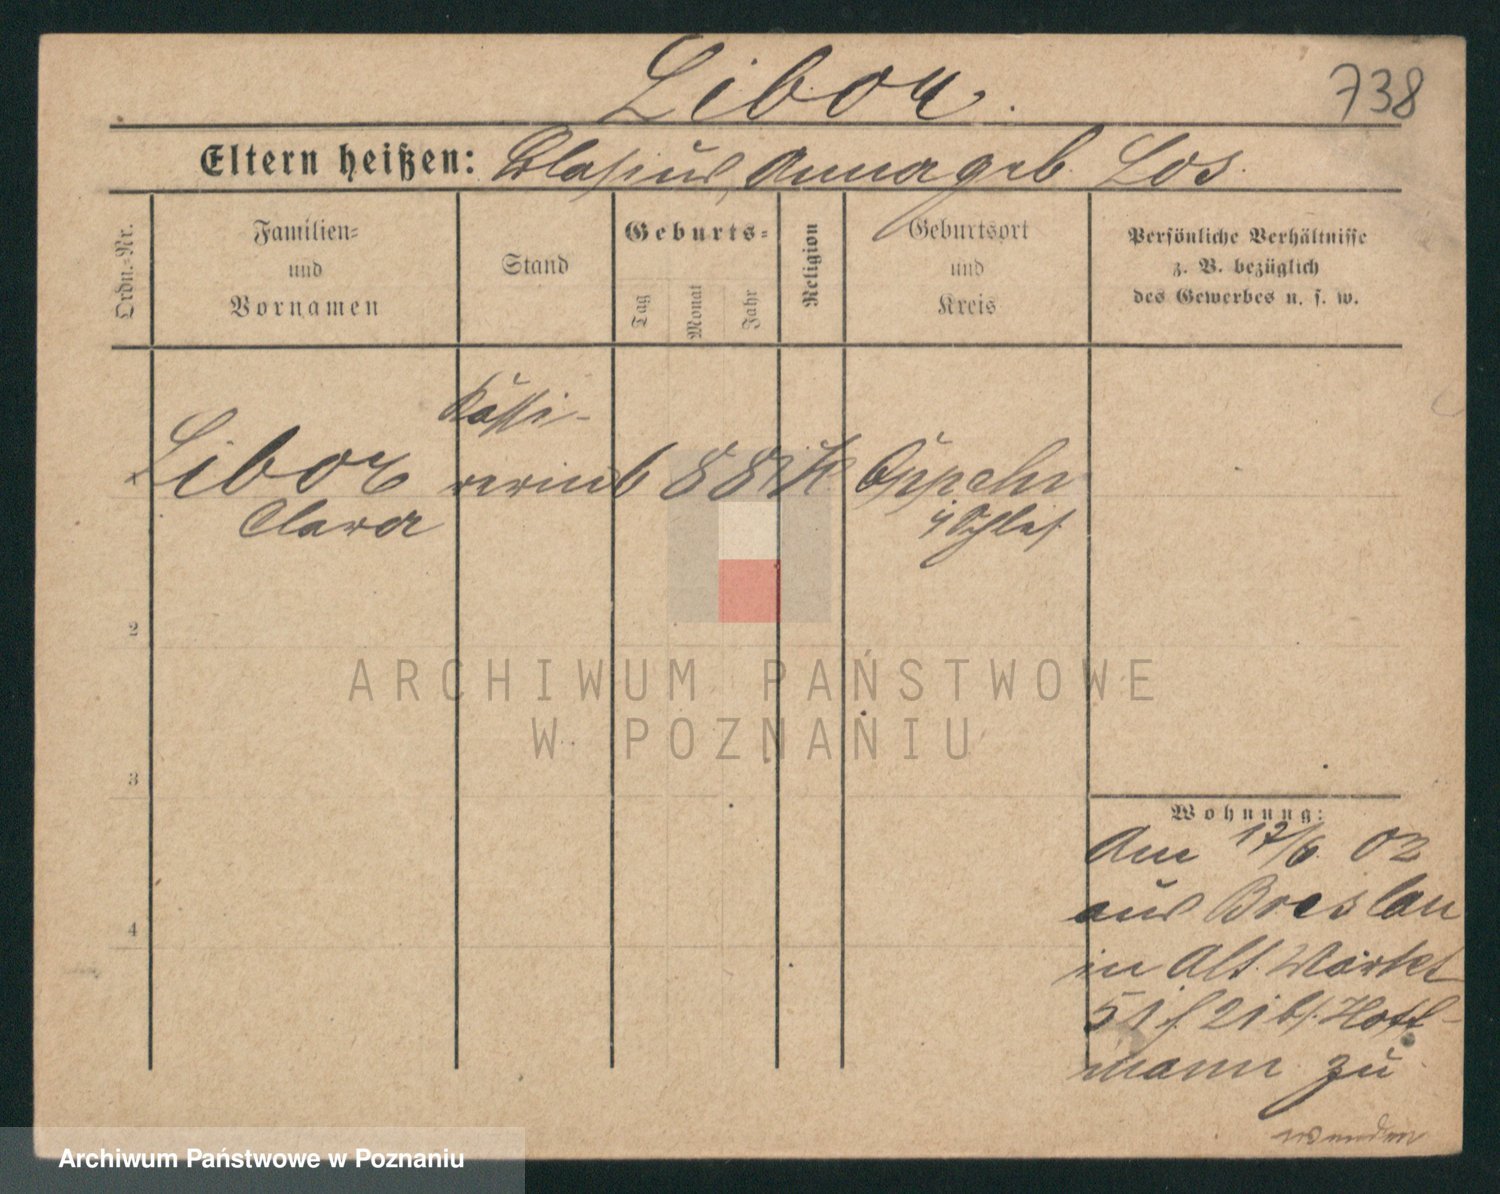 Libor.
738
Eltern heißen: Blasius, Anna geb. Los.
Ordn.-Nr.
Familien-
und
Vornamen
Stand
Geburts-
Tag
Monat
Jahr
Religion
Geburtsort
und
Kreis
Persönliche Verhältnisse
z. B. bezüglich
des Gewerbes u. s. w.
Kassi-
Libor rerin 6 8 81 K Oppeln
Clara
2
3
4
Wohnung:
Am 17/6. 02
aus Breslau
in Alt. Markt
51 b/. Hoff-
mann zu
wenden
ARCHIWUM PAŃSTWOWE
W POZNANIU
Archiwum Państwowe w Poznaniu